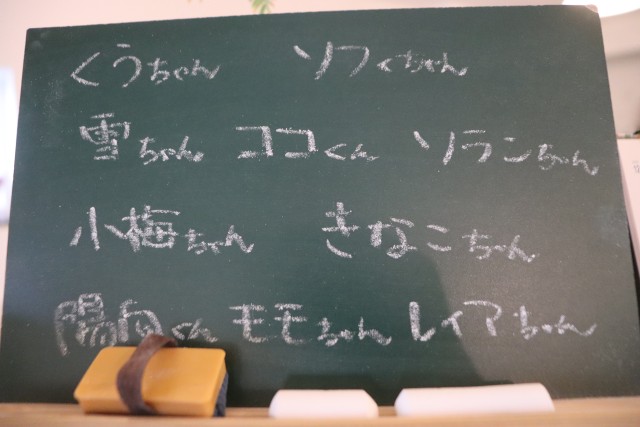 くうちゃん ソフくちゃん
雪ちゃん ココくん ソランちゃん
小梅ちゃん きなこちゃん
陽向くん モモちゃん レイアちゃん